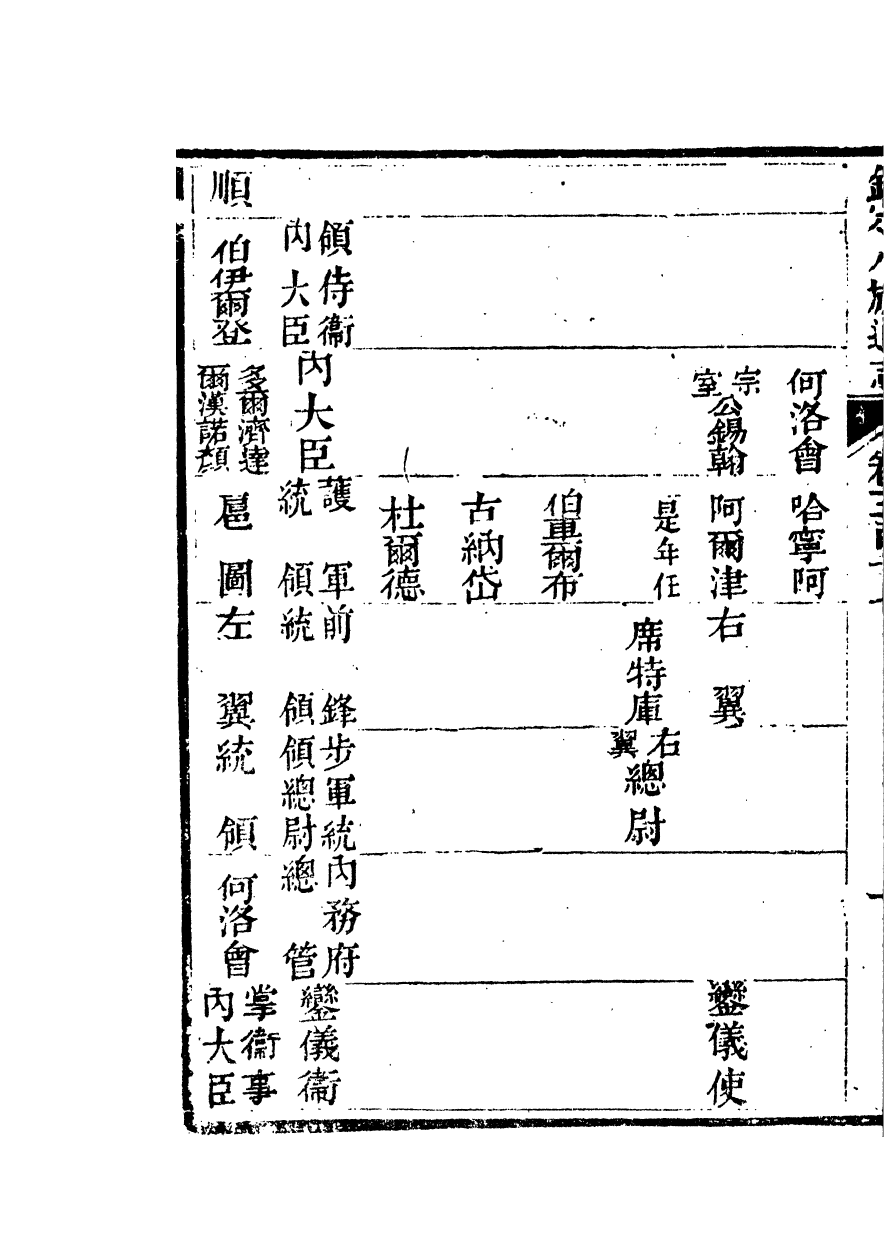 何洛會 哈寧阿
宗室公錫翰 阿爾津 右翼 鑾儀使
是年任 席特庫 右翼總尉
伯里爾布
古納岱
杜爾德
領侍衞內大臣 內大臣 護軍統領 前鋒統領 步軍統領總尉 內務府總管 鑾儀衞
順 伯伊爾登 多爾濟達爾漢諾顏 扈圖 左翼統領 何洛會 掌衞事內大臣